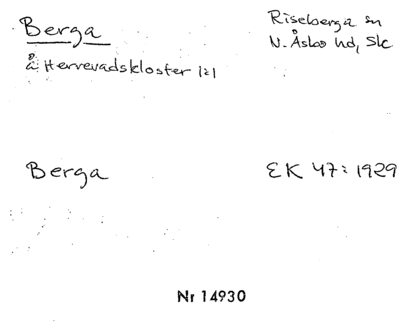 Berga
Riseberga sn
N. Åsbo hd, Sk
å Herrevadskloster 1:1
Berga
EK 47: 1929
Nr 14930